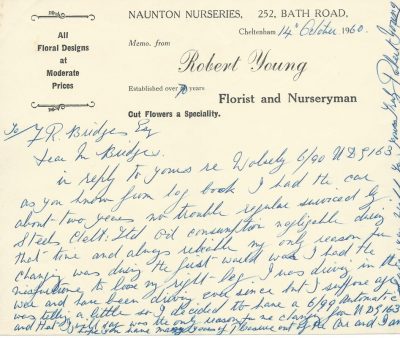 NAUNTON NURSERIES, 252, BATH ROAD,
Cheltenham 14th October 1960.
All
Floral Designs
at
Moderate
Prices
Memo. from
Robert Young
Established over 70 years
Florist and Nurseryman
Cut Flowers a Speciality.
To F.R. Bridges Esq
Dear Mr Bridges.
in reply to yours re Wolsely 6/90 UDG163
as you know from log book I had the car
about two years no trouble regular serviced by
Steels Chelt: Ltd Oil consumption negligable during
that time and always reliable my only reason for
changing was during the first world war I had the
misfortune to lose my right leg I was driving in the
war and have been driving ever since but I suppose age
was telling a little so I decided to have a 6/99 Automatic
and that I will say was the only reason for me changing from UDG163
I hope you have many years of pleasure out of the car and I am
yours truly Robert Young